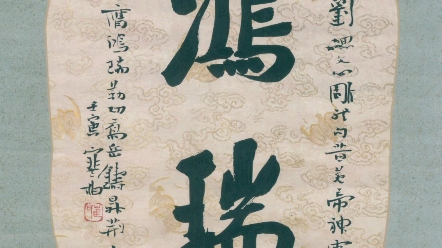 劉勰文心雕龍句昔黃帝神靈
鴻瑞
膺鴻瑞勒功喬岳鑄鼎荊
壬寅